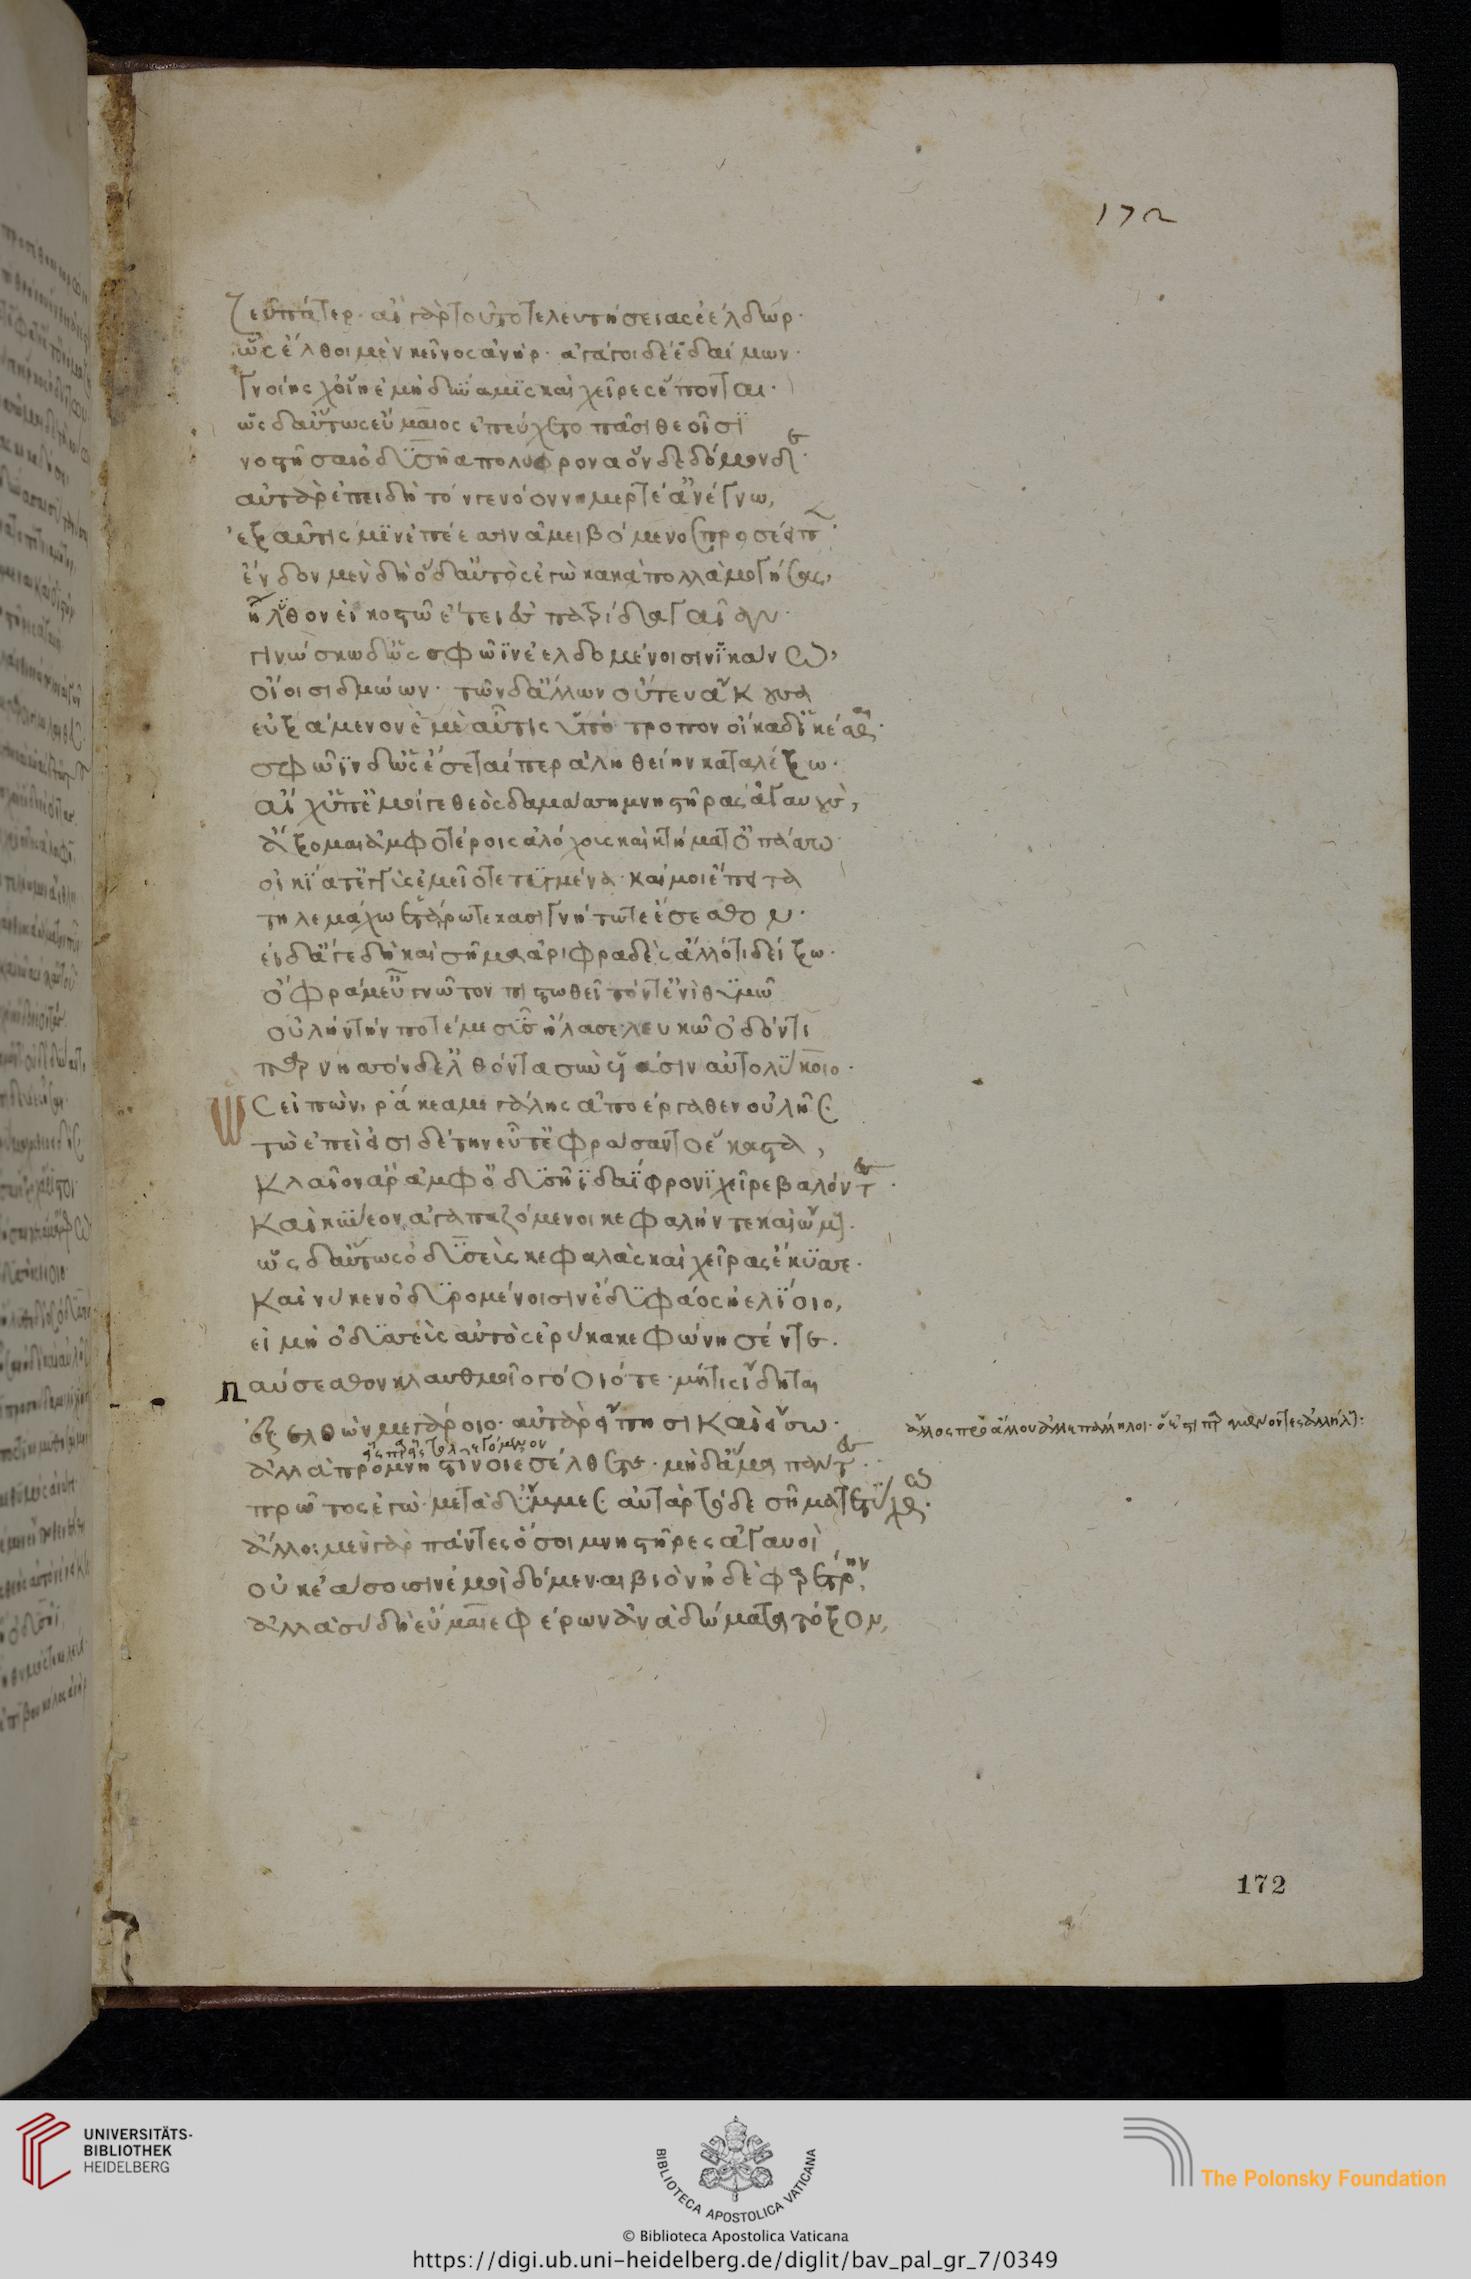 172
ζεῦ πάτερ· αἲ γὰρ τοῦτο τελευτήσειας ἐέλδωρ·
ὡς ἔλθοι μὲν κεῖνος ἀνήρ· ἀγάγοι δέ ἑ δαίμων·
γνοίης χ' οἵη ἐμὴ δύναμις καὶ χεῖρες ἕπονται·
ὡς δ' αὔτως εὔμαιος ἐπεύχετο πᾶσι θεοῖσι
νοστῆσαι ὀδυσῆα πολύφρονα ὅνδε δόμονδε·
αὐτὰρ ἐπειδὴ τόν γε νόον νημερτέ' ἀνέγνω,
ἐξ αὖτίς μιν ἐπέεσσιν ἀμειβόμενος προσέειπε·
ἔνδον μὲν δὴ ὅδ' αὐτὸς ἐγὼ κακὰ πολλὰ μογήσας,
ἤλυθον εἰκοστῷ ἔτει ἐς πατρίδα γαῖαν·
γινώσκω δ' ὡς σφῶιν ἐελδομένοισιν ἱκάνω,
οἴοισι δμώων· τῶν δ' ἄλλων οὔτευ ἄκουσα
εὐξαμένου ἐμὲ αὖτις ὑπότροπον οἴκαδ' ἱκέσθαι·
σφῶιν δ' ὡς ἔσεταί περ ἀληθείην καταλέξω·
αἴ χ' ὑπ' ἐμοί γε θεὸς δαμάσῃ μνηστῆρας ἀγαυοὺς,
ἄξομαι ἀμφοτέροις ἀλόχους καὶ κτήματ' ὀπάσσω·
οἰκία τ' ἐγγὺς ἐμεῖο τετυγμένα· καί μοι ἔπειτα
τηλεμάχου ἑτάρω τε κασιγνήτω τε ἔσεσθον·
εἰ δ' ἄγε δὴ καὶ σῆμα ἀριφραδὲς ἄλλό τι δείξω·
ὄφρα μ' ἐῢ γνῶτον πιστωθεῖτόν τ' ἐνὶ θυμῷ
οὐλὴν τήν ποτέ με σῦς ἤλασε λευκῷ ὀδόντι
παρνησόνδ' ἐλθόντα σὺν υἱάσιν αὐτολύκοιο·
Ὣς εἰπὼν, ῥάκεα μεγάλης ἀποέργαθεν οὐλῆς·
τὼ δ' ἐπεὶ εἰσιδέτην εὖ τ' ἐφράσαντο ἕκαστα,
κλαῖον ἄρ' ἀμφ' ὀδυσῆι δαΐφρονι χεῖρε βαλόντες·
καὶ κύνεον ἀγαπαζόμενοι κεφαλήν τε καὶ ὤμους·
ὣς δ' αὔτως ὀδυσεὺς κεφαλὰς καὶ χεῖρας ἔκυσσε·
καί νύ κεν ὀδυρομένοισιν ἔδυ φάος ἠελίοιο,
εἰ μὴ ὀδυσσεὺς αὐτὸς ἐρύκακε φώνησέν τε·
Παύσεσθον κλαυθμοῖο γόοιό τε· μή τις ἴδηται
ἐξελθὼν μεγάροιο· αὐτὰρ εἴπῃσι καὶ εἴσω·
ἀλλὰ προμνηστῖνοι ἐσέλθετε· μηδ' ἅμα πάντες·
πρῶτος ἐγὼ· μετὰ δ' ὔμμες· αὐτὰρ τόδε σῆμα τετύχθω·
ἄλλοι μὲν γὰρ πάντες ὅσοι μνηστῆρες ἀγαυοὶ
οὐκ ἐάσουσιν ἐμοὶ δόμεναι βιὸν ἠδὲ φαρέτρην,
ἀλλὰ σὺ δῖ' εὔμαιε φέρων ἀνὰ δώματα τόξον,
172
UNIVERSITÄTS-
BIBLIOTHEK
HEIDELBERG
BIBLIOTECA APOSTOLICA VATICANA
The Polonsky Foundation
© Biblioteca Apostolica Vaticana
https://digi.ub.uni-heidelberg.de/diglit/bav_pal_gr_7/0349